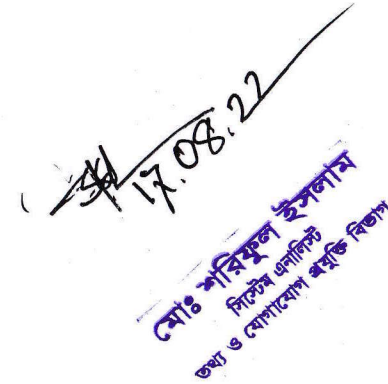 17.08.22
মোঃ শরিফুল ইসলাম
সিস্টেম এনালিস্ট
তথ্য ও যোগাযোগ প্রযুক্তি বিভাগ